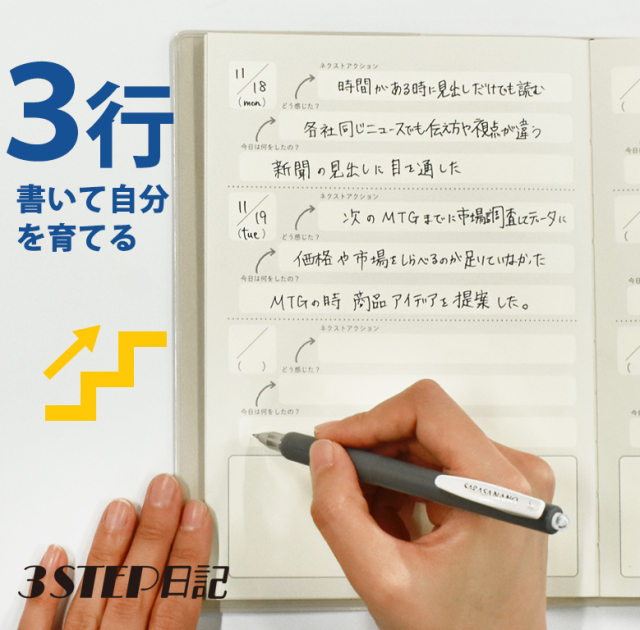 3行
書いて自分
を育てる
3STEP日記
ネクストアクション
11/18
(mon)
時間がある時に見出しだけでも読む
どう感じた?
各社同じニュースでも伝え方や視点が違う
今日は何をしたの?
新聞の見出しに目を通した
ネクストアクション
11/19
(tue)
次のMTGまでに市場調査してデータに
どう感じた?
価格や市場をしらべるのが足りていなかった
今日は何をしたの?
MTGの時 商品アイデアを提案した。
ネクストアクション
/
( )
どう感じた?
今日は何をしたの?
SARASA NANO